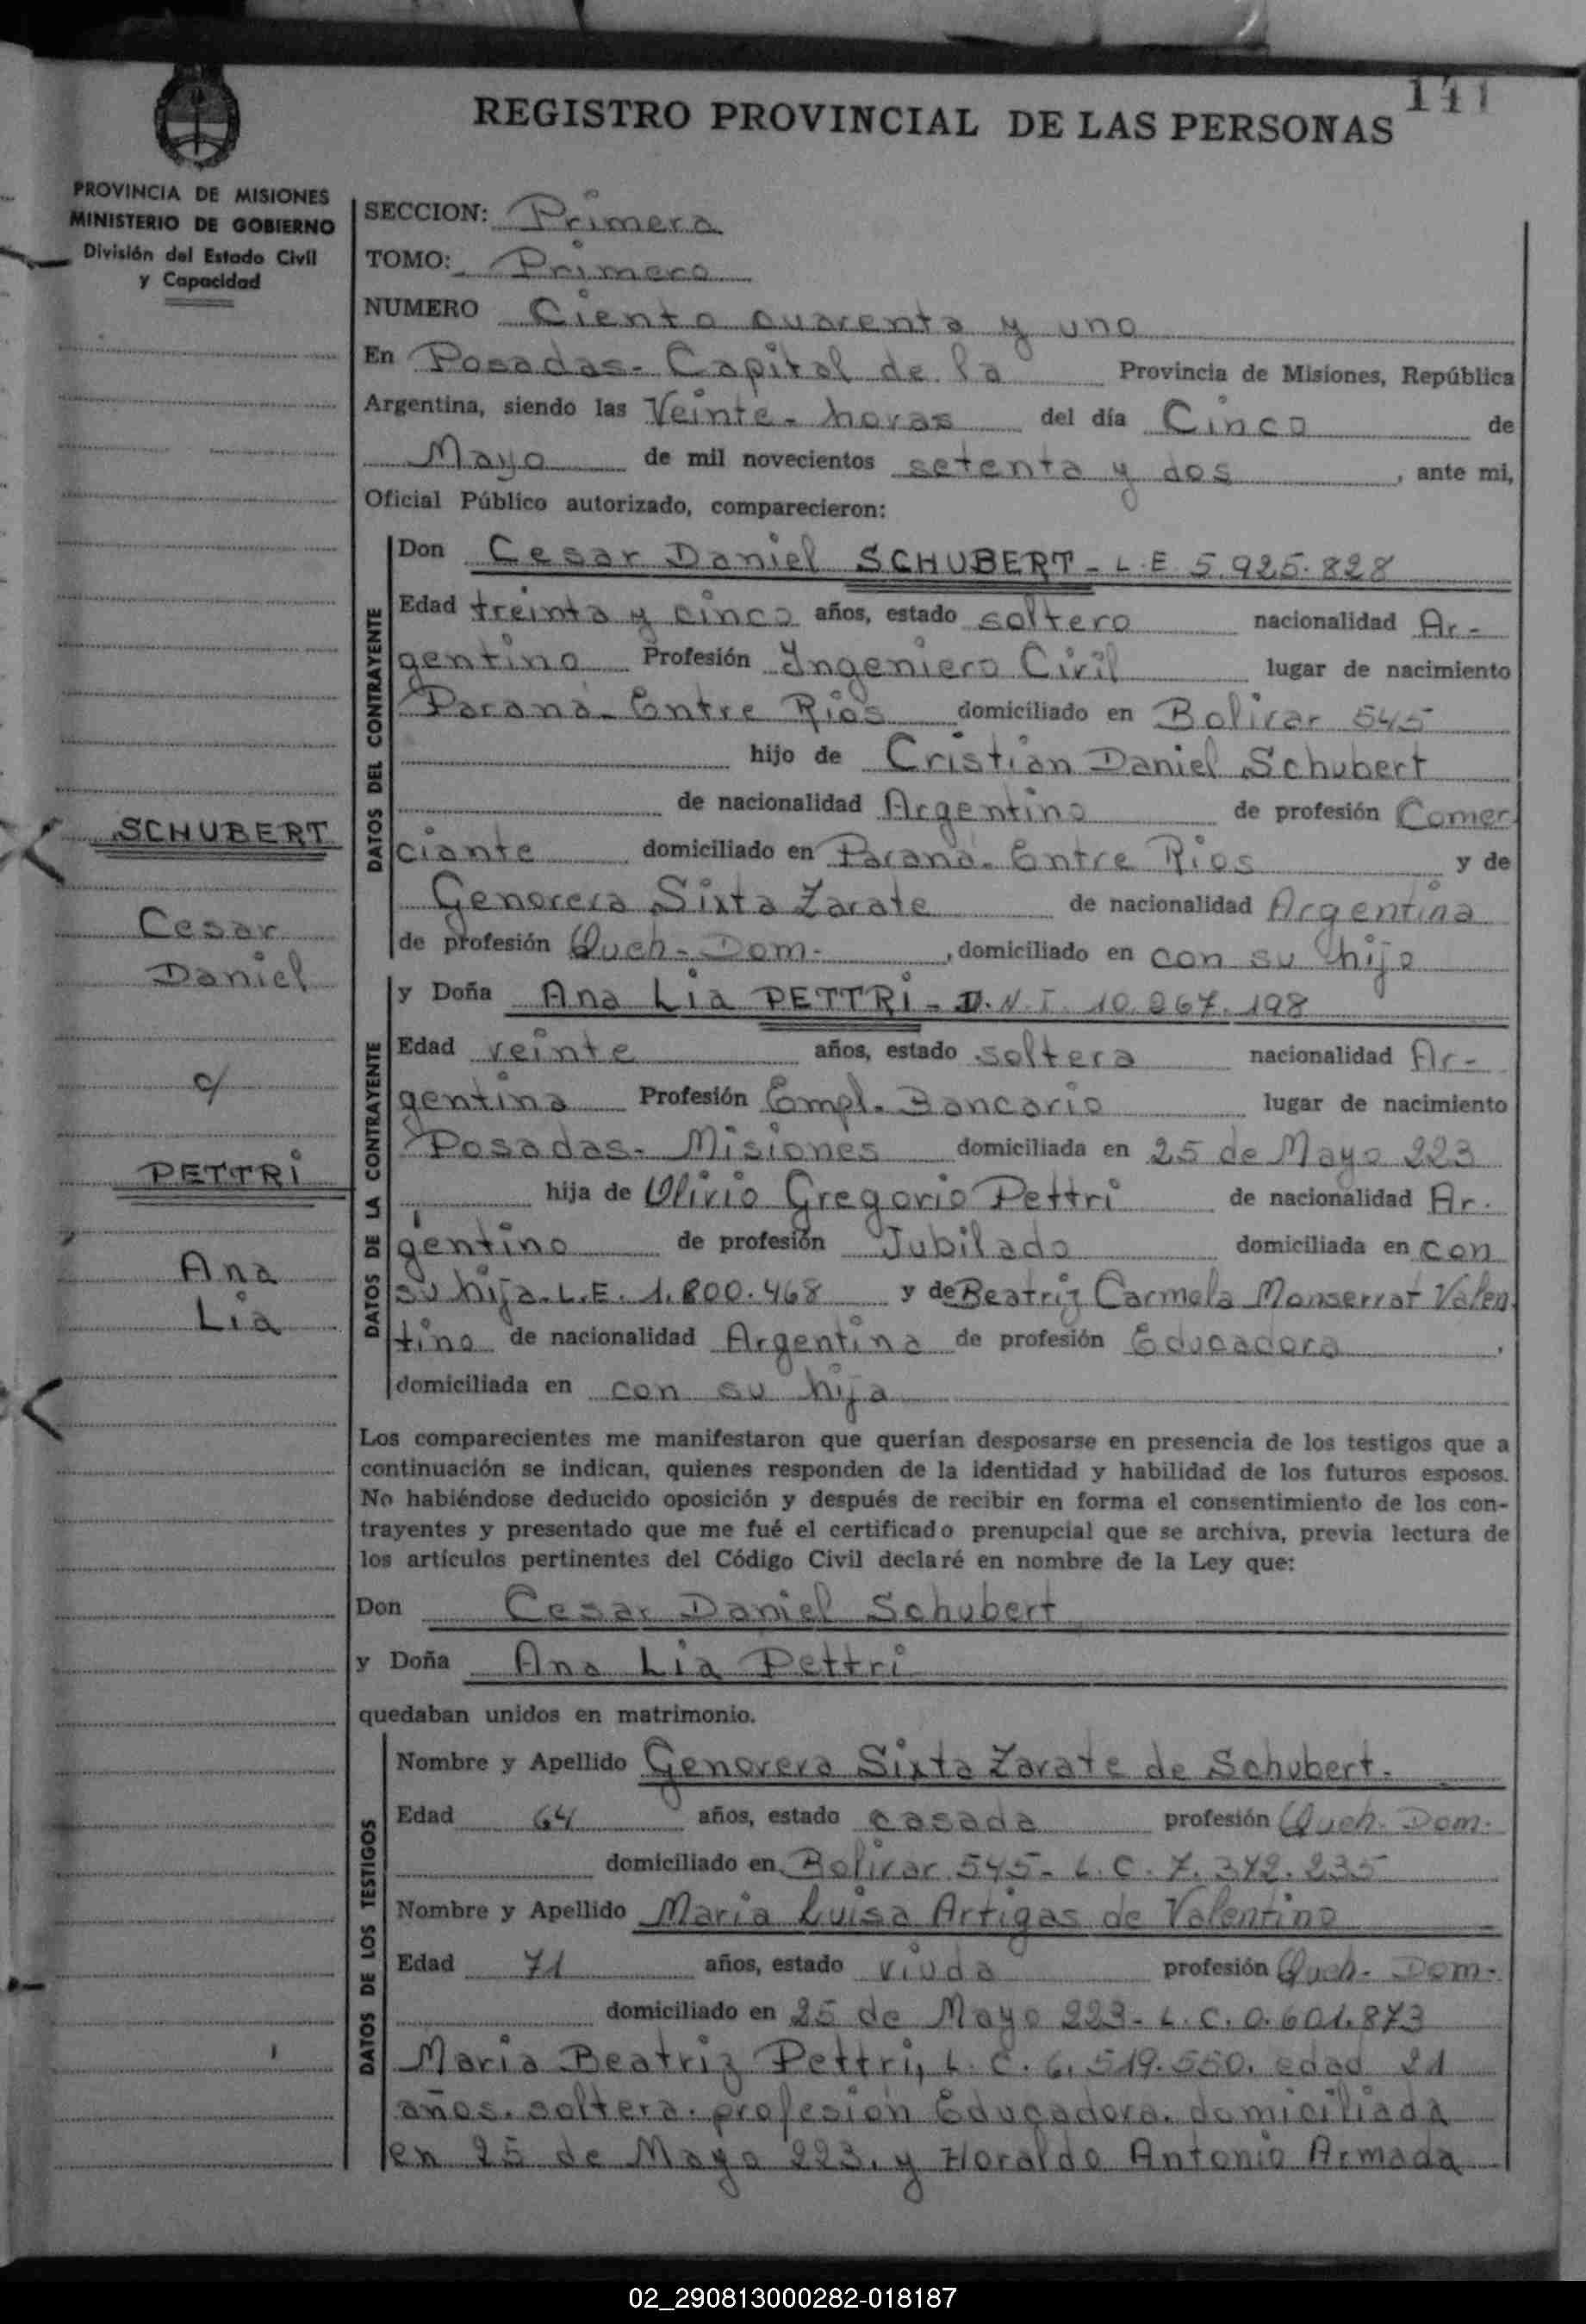 141
REGISTRO PROVINCIAL DE LAS PERSONAS
PROVINCIA DE MISIONES
MINISTERIO DE GOBIERNO
División del Estado Civil
y Capacidad
SECCION: Primera
TOMO: Primero
NUMERO Ciento cuarenta y uno
En Posadas- Capital de la Provincia de Misiones, República
Argentina, siendo las Veinte- horas del día Cinco de
Mayo de mil novecientos setenta y dos, ante mi,
Oficial Público autorizado, comparecieron:
DATOS DEL CONTRAYENTE
Don Cesar Daniel SCHUBERT- L.E 5.925.828
Edad treinta y cinco años, estado soltero nacionalidad Ar-
gentino Profesión Ingeniero Civil lugar de nacimiento
Paraná- Entre Rios domiciliado en Bolivar 545
hijo de Cristian Daniel Schubert
de nacionalidad Argentino de profesión Comer
ciante domiciliado en Paraná- Entre Rios y de
Genoveva Sixta Zarate de nacionalidad Argentina
de profesión Queh- Dom-, domiciliado en con su hijo
DATOS DE LA CONTRAYENTE
y Doña Ana Lia PETTRI- D.N.I. 10.267.198
Edad veinte años, estado soltera nacionalidad Ar-
gentina Profesión Empl. Bancario lugar de nacimiento
Posadas- Misiones domiciliada en 25 de Mayo 223
hija de Olivio Gregorio Pettri de nacionalidad Ar.
gentino de profesión Jubilado domiciliada en con
su hija. L.E. 1.800.468 y de Beatriz Carmela Monserrat Valen
tino de nacionalidad Argentina de profesión Educadora,
domiciliada en con su hija
SCHUBERT
Cesar
Daniel
c/
PETTRI
Ana
Lia
Los comparecientes me manifestaron que querían desposarse en presencia de los testigos que a
continuación se indican, quienes responden de la identidad y habilidad de los futuros esposos.
No habiéndose deducido oposición y después de recibir en forma el consentimiento de los con-
trayentes y presentado que me fué el certificado prenupcial que se archiva, previa lectura de
los artículos pertinentes del Código Civil declaré en nombre de la Ley que:
Don Cesar Daniel Schubert
y Doña Ana Lia Pettri
quedaban unidos en matrimonio.
DATOS DE LOS TESTIGOS
Nombre y Apellido Genoveva Sixta Zarate de Schubert.
Edad 64 años, estado casada profesión Queh- Dom.
domiciliado en Bolivar 545- L.C. 7.372.235
Nombre y Apellido Maria Luisa Artigas de Valentino
Edad 71 años, estado viuda profesión Queh- Dom-
domiciliado en 25 de Mayo 223- L.C. 0.601.873
Maria Beatriz Pettri, L.C. 6.519.550. edad 21
años. soltera. profesión Educadora. domiciliada
en 25 de Mayo 223. y Horaldo Antonio Armada
02_290813000282-018187